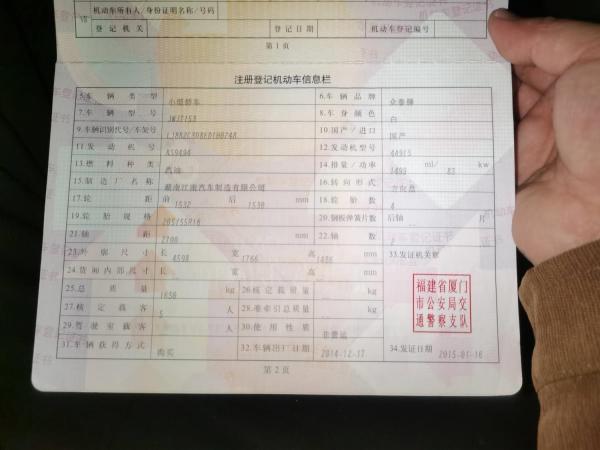 机动车所有人/身份证明名称/号码
登记机关 登记日期 机动车登记编号
第1页
注册登记机动车信息栏
5.车辆类型 小型轿车 6.车辆品牌 众泰牌
7.车辆型号 8.车身颜色 白
9.车辆识别代号/车架号 10.国产/进口 国产
11.发动机号 A59494 12.发动机型号 4A91S
13.燃料种类 汽油 14.排量/功率 1499 ml/ 83 kw
15.制造厂名称 湖南江南汽车制造有限公司 16.转向形式 方向盘
17.轮距 前 1532 后 1530 mm 18.轮胎数 4
19.轮胎规格 205/55R16 20.钢板弹簧片数 后轴 片
21.轴距 2700 mm 22.轴数
23.外廓尺寸 长 4598 宽 1766 高 mm 33.发证机关章
24.货厢内部尺寸 长 宽 高 mm
25.总质量 1650 kg 26.核定载质量 kg
27.核定载客 5 人 28.准牵引总质量 kg
29.驾驶室载客 人 30.使用性质 非营运
福建省厦门
市公安局交
通警察支队
31.车辆获得方式 购买 32.车辆出厂日期 2014-12-17 34.发证日期 2015-01-16
第2页